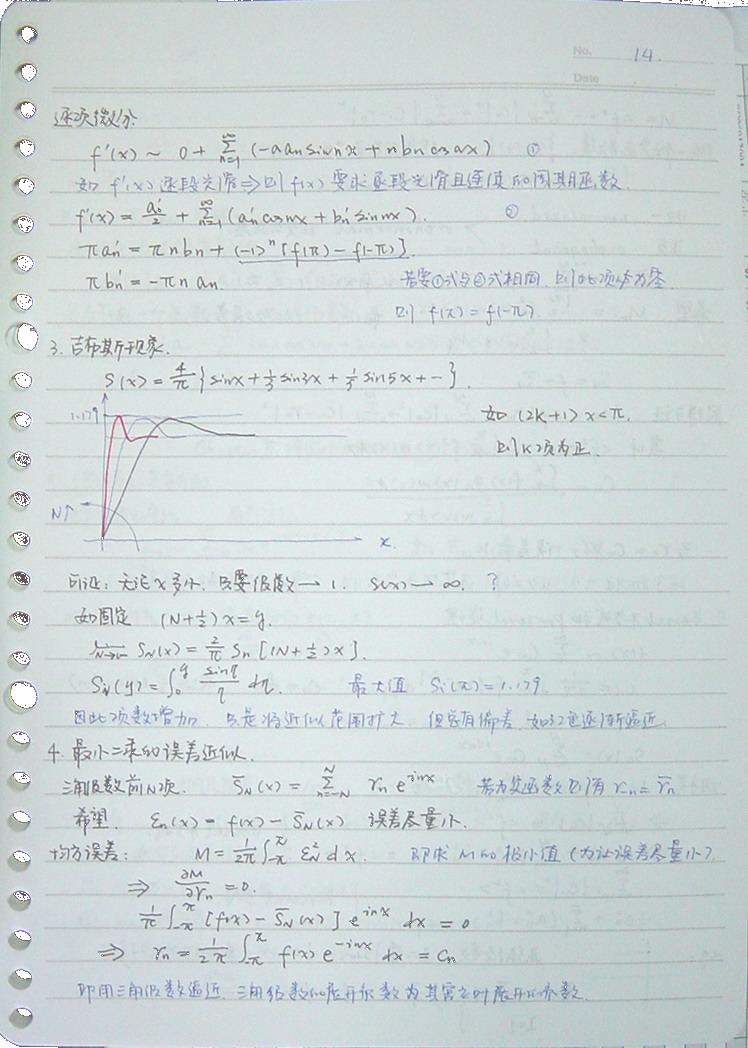 No. 14.
Date
逐项微分
f'(x) ~ 0 + ∑_{n=1}^{∞} (-n an sin nx + n bn cos nx) ①
如 f'(x) 逐段光滑 ⇒ 则 f(x) 要求逐段光滑且连续的周期函数.
f'(x) = a₀'/2 + ∑_{n=1}^{∞} (an' cos nx + bn' sin nx). ②
π an' = π n bn + (-1)ⁿ [f(π) - f(-π)]
π bn' = -π n an. 若要①式与②式相同 则此项必为零
则 f(π) = f(-π)
3. 吉布斯现象.
S(x) = 4/π { sin x + 1/3 sin 3x + 1/5 sin 5x + … }.
1.179 如 (2k+1) x < π.
则 k 项为正.
N↑
x.
可证: 无论 x 多小, 只要级数 → 1. S(x) → ∞. ?
如固定 (N + 1/2) x = y.
lim_{N→∞} S_N(x) = 2/π Si [(N + 1/2) x].
Si(y) = ∫₀^y sin η / η dη. 最大值 Si(π) = 1.179
因此项数增加, 只是将近似范围扩大 但总有偏差, 如红色逐渐逼近.
4. 最小二乘的误差近似.
三角级数前 N 项. S̄_N(x) = ∑_{n=-N}^{N} γn e^{inx} 若为实函数则有 γ-n = γ̄n
希望. εn(x) = f(x) - S̄_N(x) 误差尽量小.
均方误差: M = 1/2π ∫_{-π}^{π} ε_N² dx. 即求 M 的极小值 (为让误差尽量小)
⇒ ∂M/∂γn = 0.
1/π ∫_{-π}^{π} [f(x) - S̄_N(x)] e^{inx} dx = 0
⇒ γn = 1/2π ∫_{-π}^{π} f(x) e^{-inx} dx = Cn
即用三角级数逼近, 三角级数的展开系数为其富立叶展开的系数.